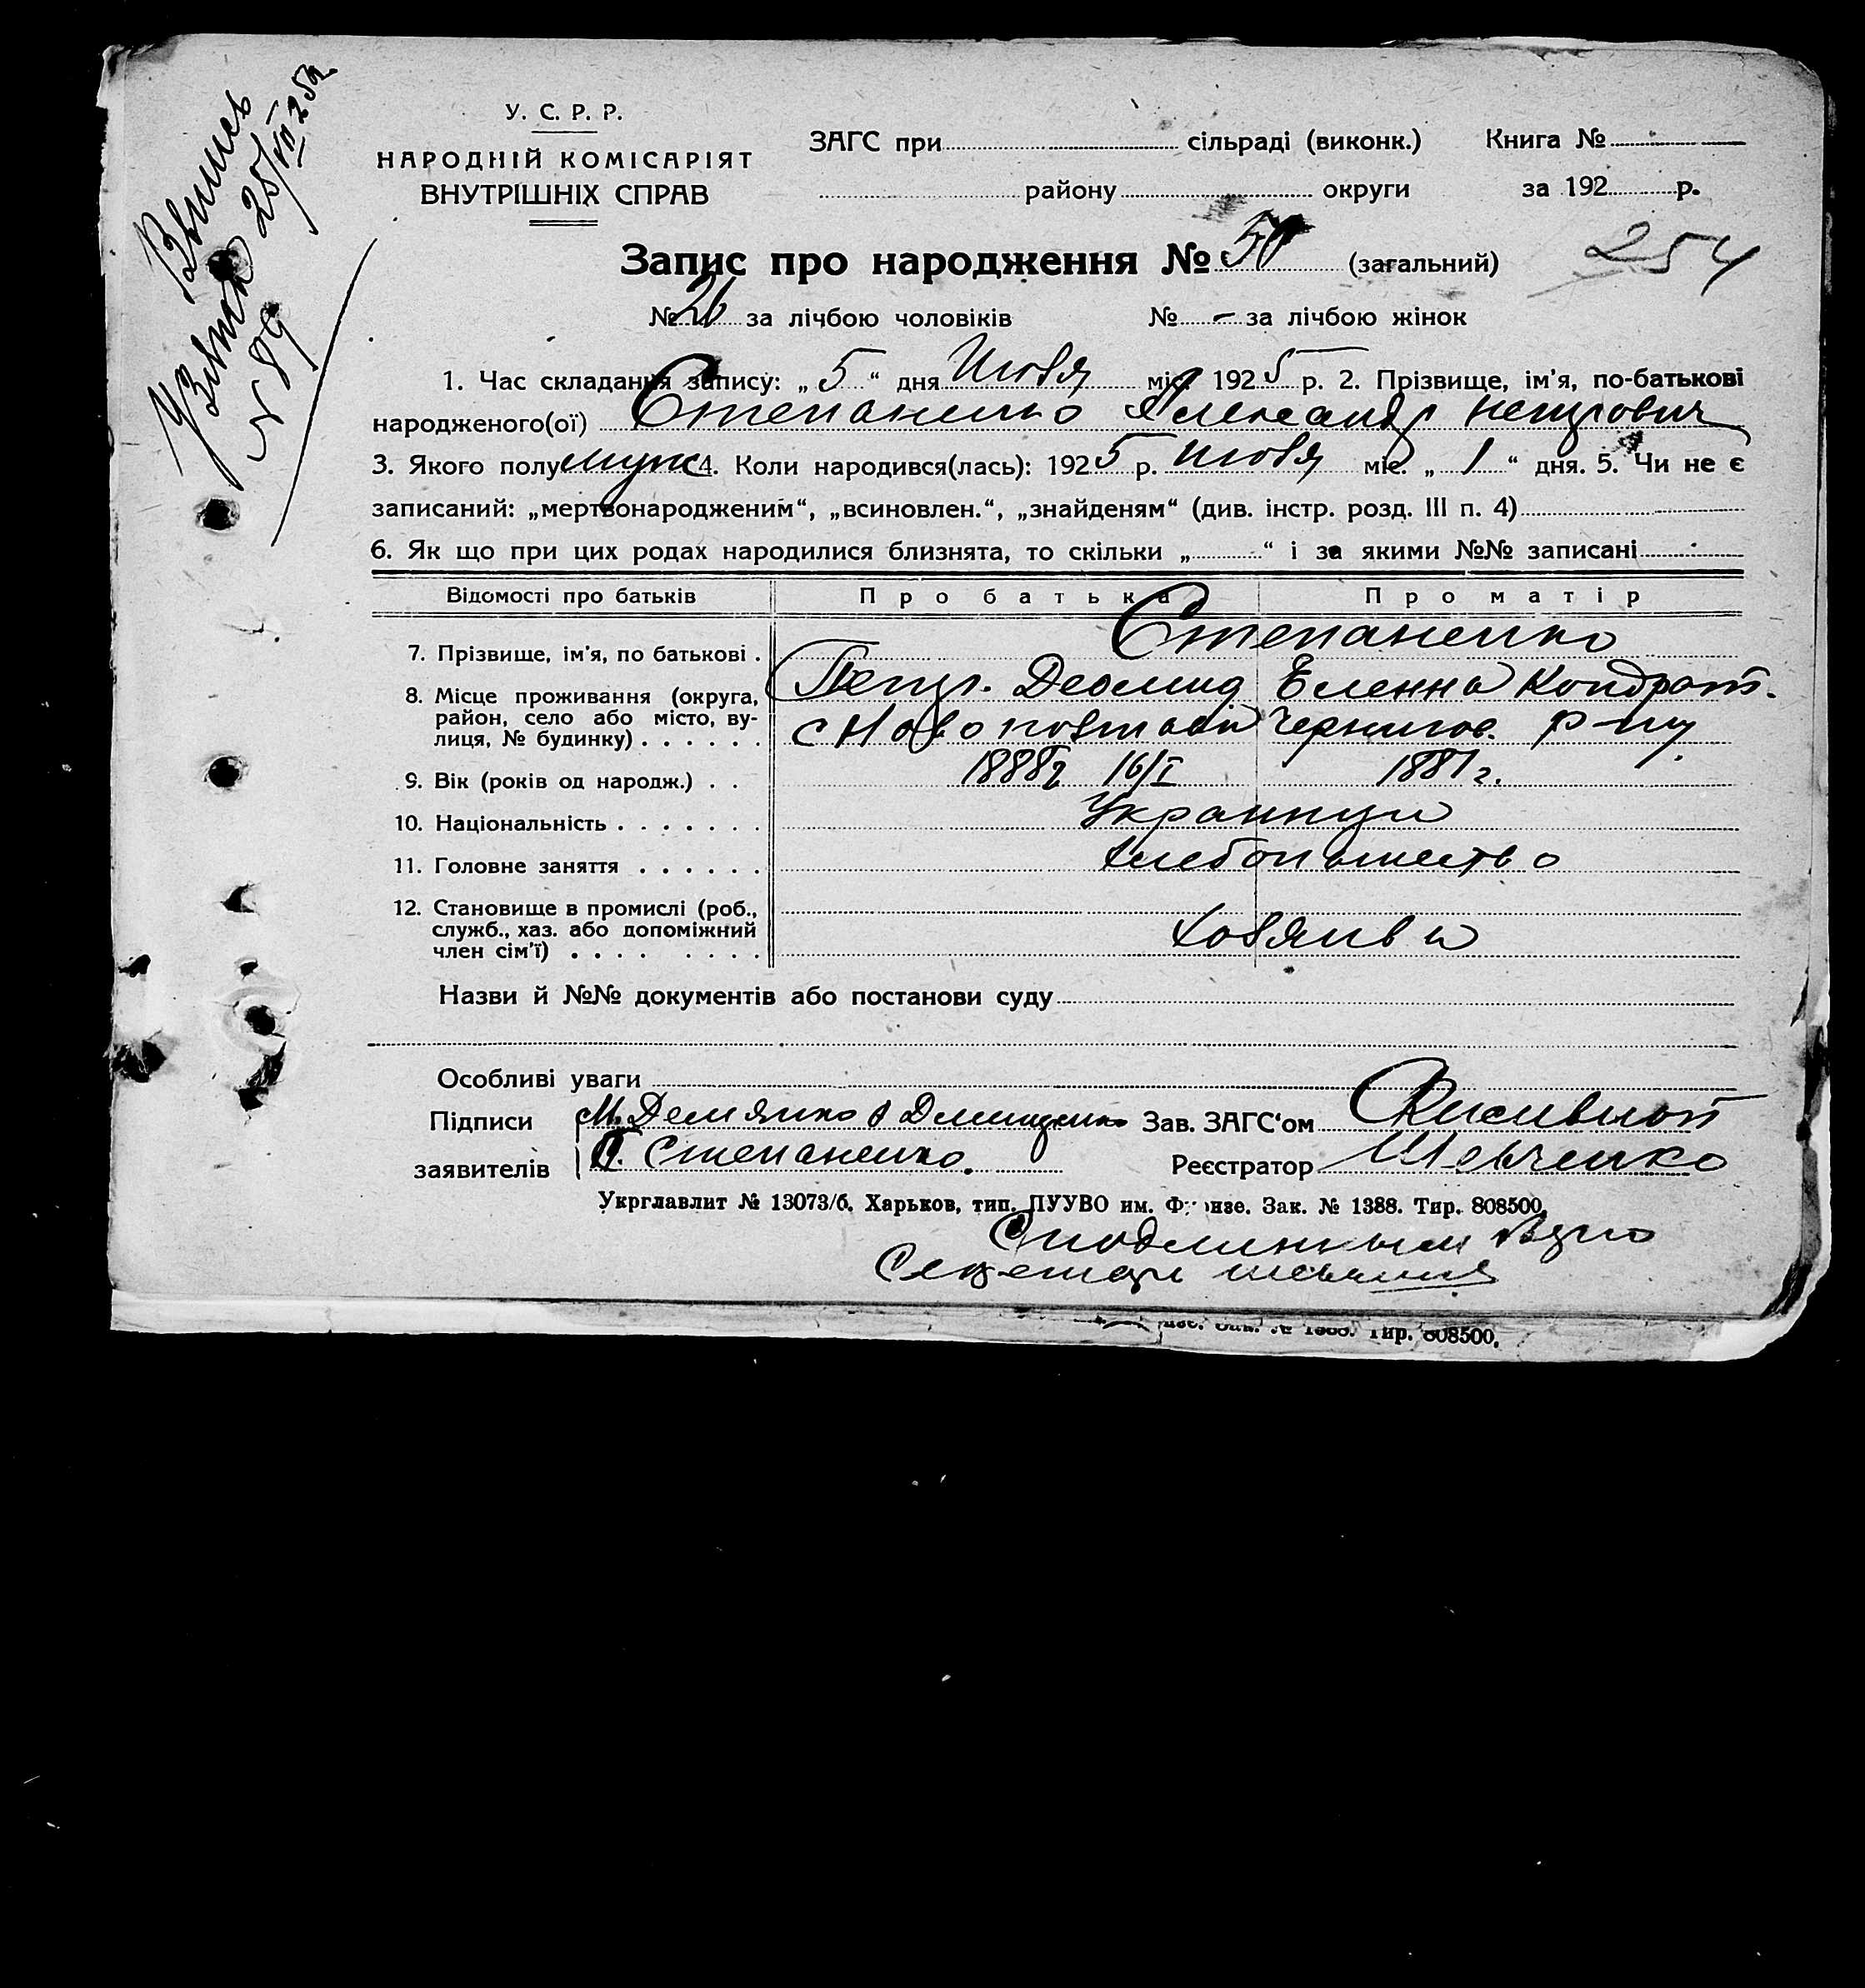 У. С. Р. Р.
НАРОДНІЙ КОМІСАРІЯТ
ВНУТРІШНІХ СПРАВ
ЗАГС при сільраді (виконк.) Книга №
району округи за 192 р.
25/VII 25 г.
№ 89
Запис про народження № 50 (загальний) 254
№ 26 за лічбою чоловіків № - за лічбою жінок
1. Час складання запису: „ 5 “ дня Июля міс. 1925 р. 2. Прізвище, ім'я, по-батькові
народженого(ої) Степаненко Александр Петрович
3. Якого полу муж 4. Коли народився(лась): 1925 р. Июля міс. „ 1 “ дня. 5. Чи не є
записаний: „мертвонародженим“, „всиновлен.“, „знайденям“ (див. інстр. розд. III п. 4)
6. Як що при цих родах народилися близнята, то скільки „ “ і за якими №№ записані
Відомості про батьків Про батька Про матір
7. Прізвище, ім'я, по батькові . Степаненко
Петр. Деомид Еленна Кондрат.
8. Місце проживання (округа,
район, село або місто, ву-
лиця, № будинку) . . . . . . с Ново Чернигов. р-ну
9. Вік (років од народж.) . . 1888 г 16/I 1881 г.
10. Національність . . . . . . . Украинцы
11. Головне заняття . . . . . . Хлебопашество
12. Становище в промислі (роб.,
служб., хаз. або допоміжний
член сім'ї) . . . . . . . . Хозяива
Назви й №№ документів або постанови суду
Особливі уваги
Підписи М. Демянко Зав. ЗАГС'ом
заявителів П. Степаненко. Реєстратор Шевченко
Укрглавлит № 13073/б. Харьков, тип. ПУУВО им. Фрунзе. Зак. № 1388. Тир. 808500.
С подлинным верно
Секретарь
Зак. № 1388. Тир. 808500.